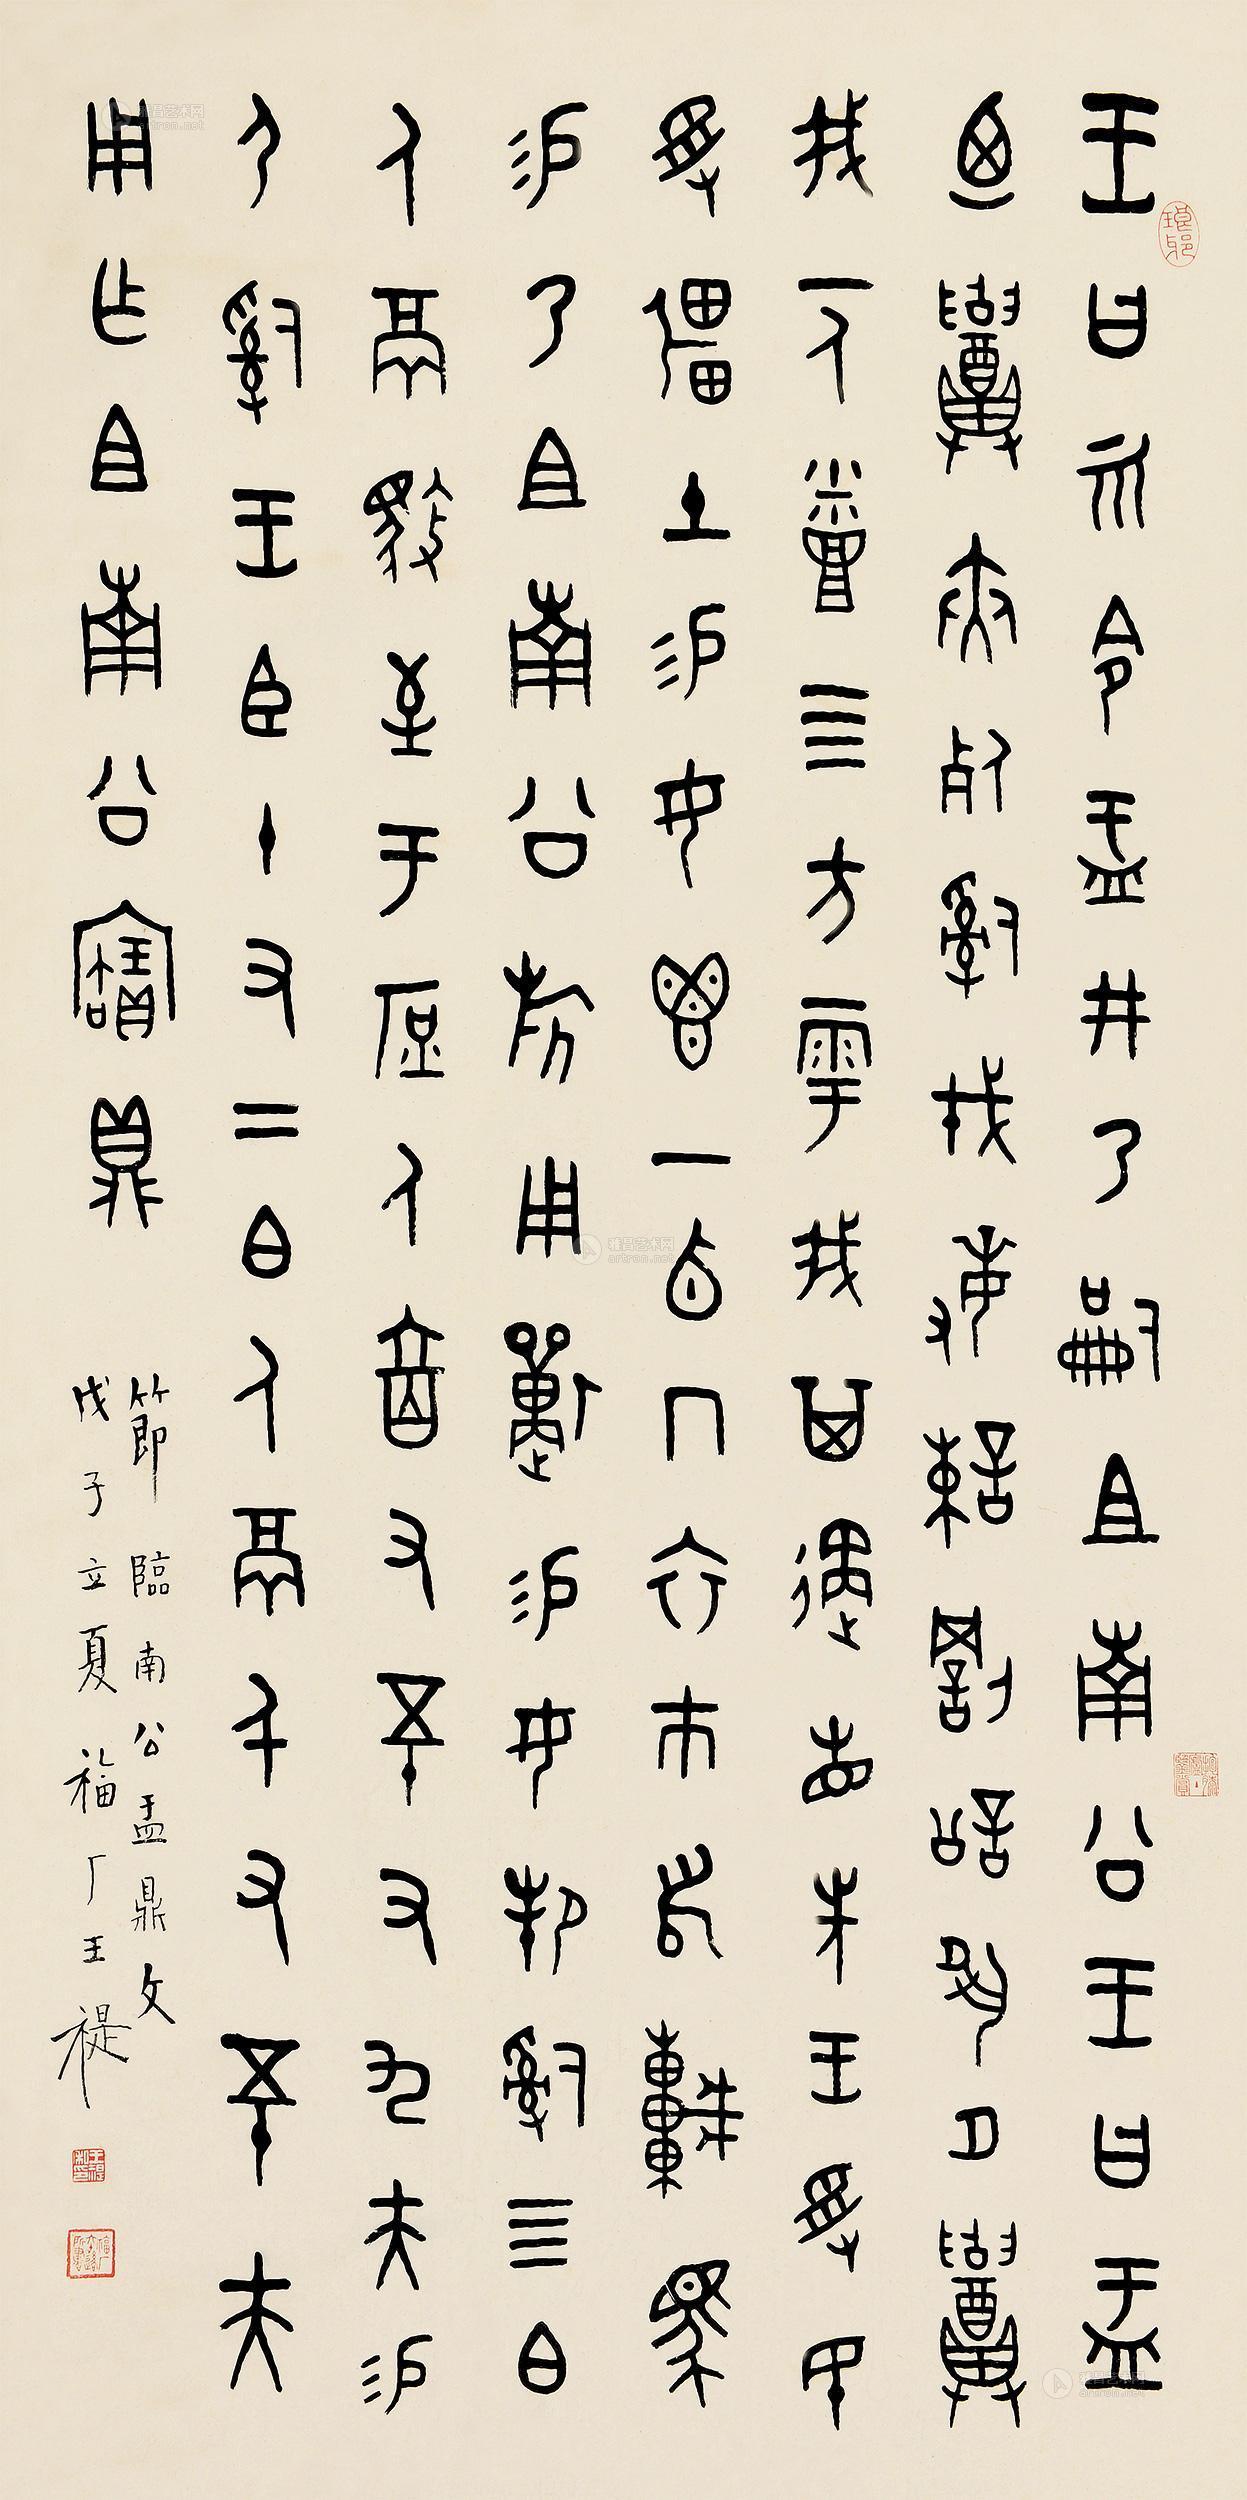 王曰令盂井乃嗣且南公王曰盂
廼召夾死𤔲戎敏諫罰訟夙夕召
我一人烝四方雩我其遹省先王受民
受彊土易女鬯一卣冂衣巿舄車馬
易乃且南公旂用狩易女邦𤔲四白
人鬲馭至于庶人六百又五十又九夫易
尸𤔲王臣十又二白人鬲千又五十夫
用乍且南公寶鼎
節臨南公盂鼎文
戊子立夏福厂王禔